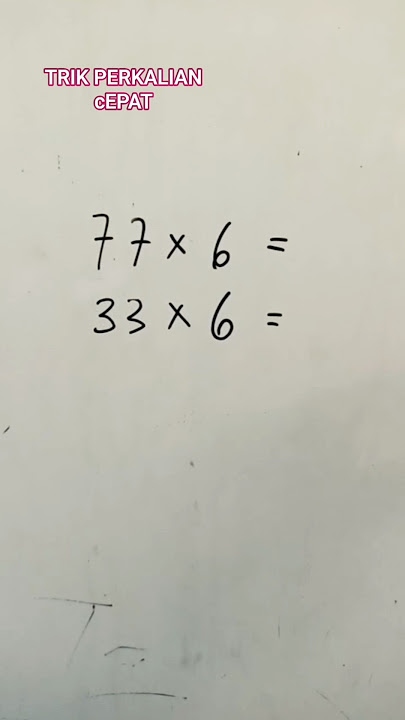 TRIK PERKALIAN
cEPAT
77 × 6 =
33 × 6 =